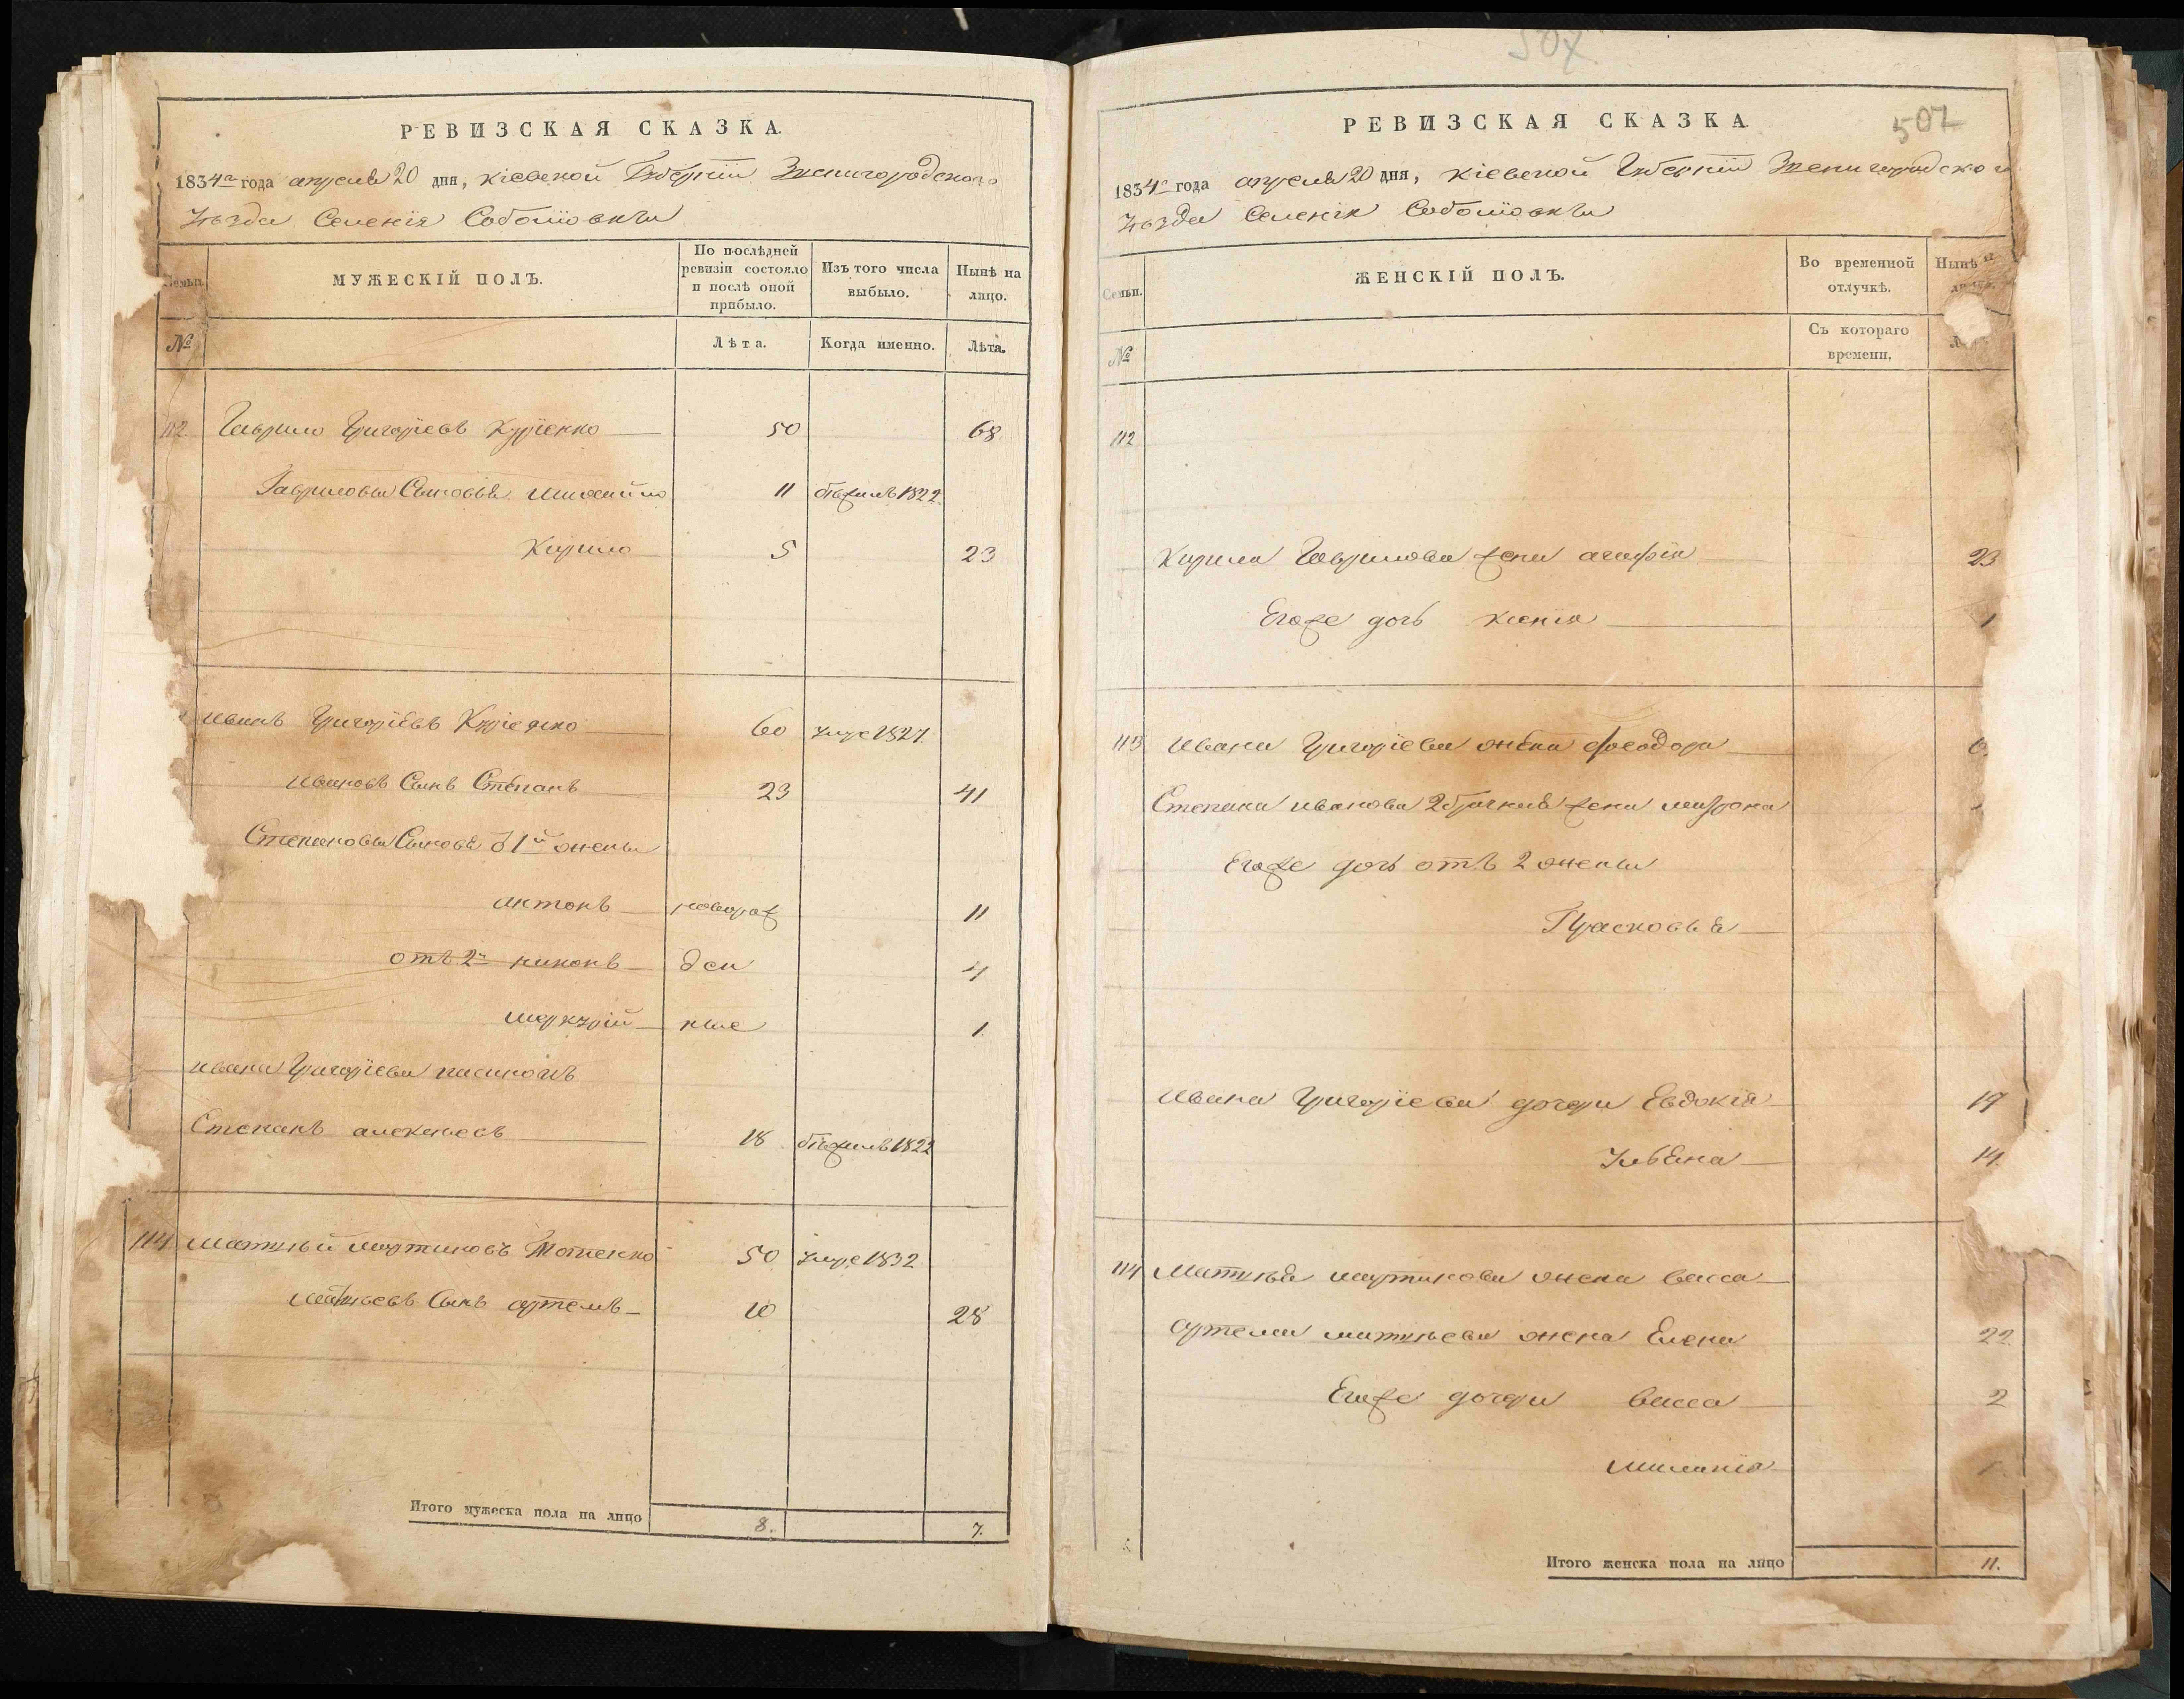 РЕВИЗСКАЯ СКАЗКА.
1834го года апреля 20 дня, Кіевской Губерніи Звенигородского
Уѣзда Селенія Соболіовки
Семьи.
МУЖЕСКІЙ ПОЛЪ.
По послѣдней ревизіи состояло и послѣ оной прибыло.
Изъ того числа выбыло.
Нынѣ на лицо.
№
Лѣта.
Когда именно.
Лѣта.
112. Гаврило Григоріевъ Куріенко 50 68
Гавриловы Сыновья Михайло 11 бѣжилъ 1822
Кирило 5 23
Иванъ Григоріевъ Куріенко 60 умре 1827.
Ивановъ Сынъ Степанъ 23 41
Степановы Сыновья 1й жены
Антонъ новорож 11
отъ 2й Никонъ ден 4
Меркурій ные 1.
Ивана Григоріева пасинокъ
Степанъ Алексѣевъ 18 бѣжилъ 1822
114. Матвѣй Мартиновъ 50 умре 1832
Матвѣевъ Сынъ Артемъ 10 28
Итого мужеска пола на лицо 8. 7.
507
507
РЕВИЗСКАЯ СКАЗКА.
1834го года апреля 20 дня, Кіевской Губерніи Звенигородского
Уѣзда Селенія Соболіовки
Семьи.
ЖЕНСКІЙ ПОЛЪ.
Во временной отлучкѣ.
Нынѣ
№
Съ котораго времени.
112
Кирила Гаврилова жена Агафія 23
Егоже дочь Ксенія 1
113 Ивана Григоріева жена Феодора
Степана Иванова 2 брачная жена Матрона
Егоже дочь отъ 2 жены
Прасковья
Ивана Григоріева дочери Евдокія 19
Ульяна 14
114 Матвѣя Мартинова жена Васса
Артема Матвѣева жена Елена 22
Егоже дочери Васса 2
Миланія
Итого женска пола на лицо 11.